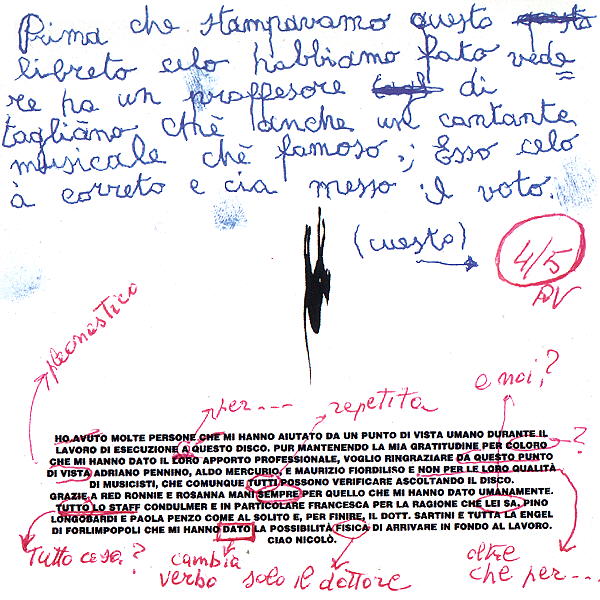 Prima che stampavamo questo questo
libreto celo habbiamo fato vede
re ha un proffesore di
tagliàno chè anche un cantante
musicale chè famoso,; Esso celo
à correto e cia messo il voto.
(cuesto)
4/5
pleonastico
per----
repetita
e noi?
?
HO AVUTO MOLTE PERSONE CHE MI HANNO AIUTATO DA UN PUNTO DI VISTA UMANO DURANTE IL
LAVORO DI ESECUZIONE A QUESTO DISCO. PUR MANTENENDO LA MIA GRATITUDINE PER COLORO
CHE MI HANNO DATO IL LORO APPORTO PROFESSIONALE, VOGLIO RINGRAZIARE DA QUESTO PUNTO
DI VISTA ADRIANO PENNINO, ALDO MERCURIO, E MAURIZIO FIORDILISO E NON PER LE LORO QUALITÀ
DI MUSICISTI, CHE COMUNQUE TUTTI POSSONO VERIFICARE ASCOLTANDO IL DISCO.
GRAZIE A RED RONNIE E ROSANNA MANI SEMPRE PER QUELLO CHE MI HANNO DATO UMANAMENTE.
TUTTO LO STAFF CONDULMER E IN PARTICOLARE FRANCESCA PER LA RAGIONE CHE LEI SA, PINO
LONGOBARDI E PAOLA PENZO COME AL SOLITO E, PER FINIRE, IL DOTT. SARTINI E TUTTA LA ENGEL
DI FORLIMPOPOLI CHE MI HANNO DATO LA POSSIBILITÀ FISICA DI ARRIVARE IN FONDO AL LAVORO.
CIAO NICOLÒ.
Tutto cosa?
cambia
verbo
solo il dottore
oltre
che per---